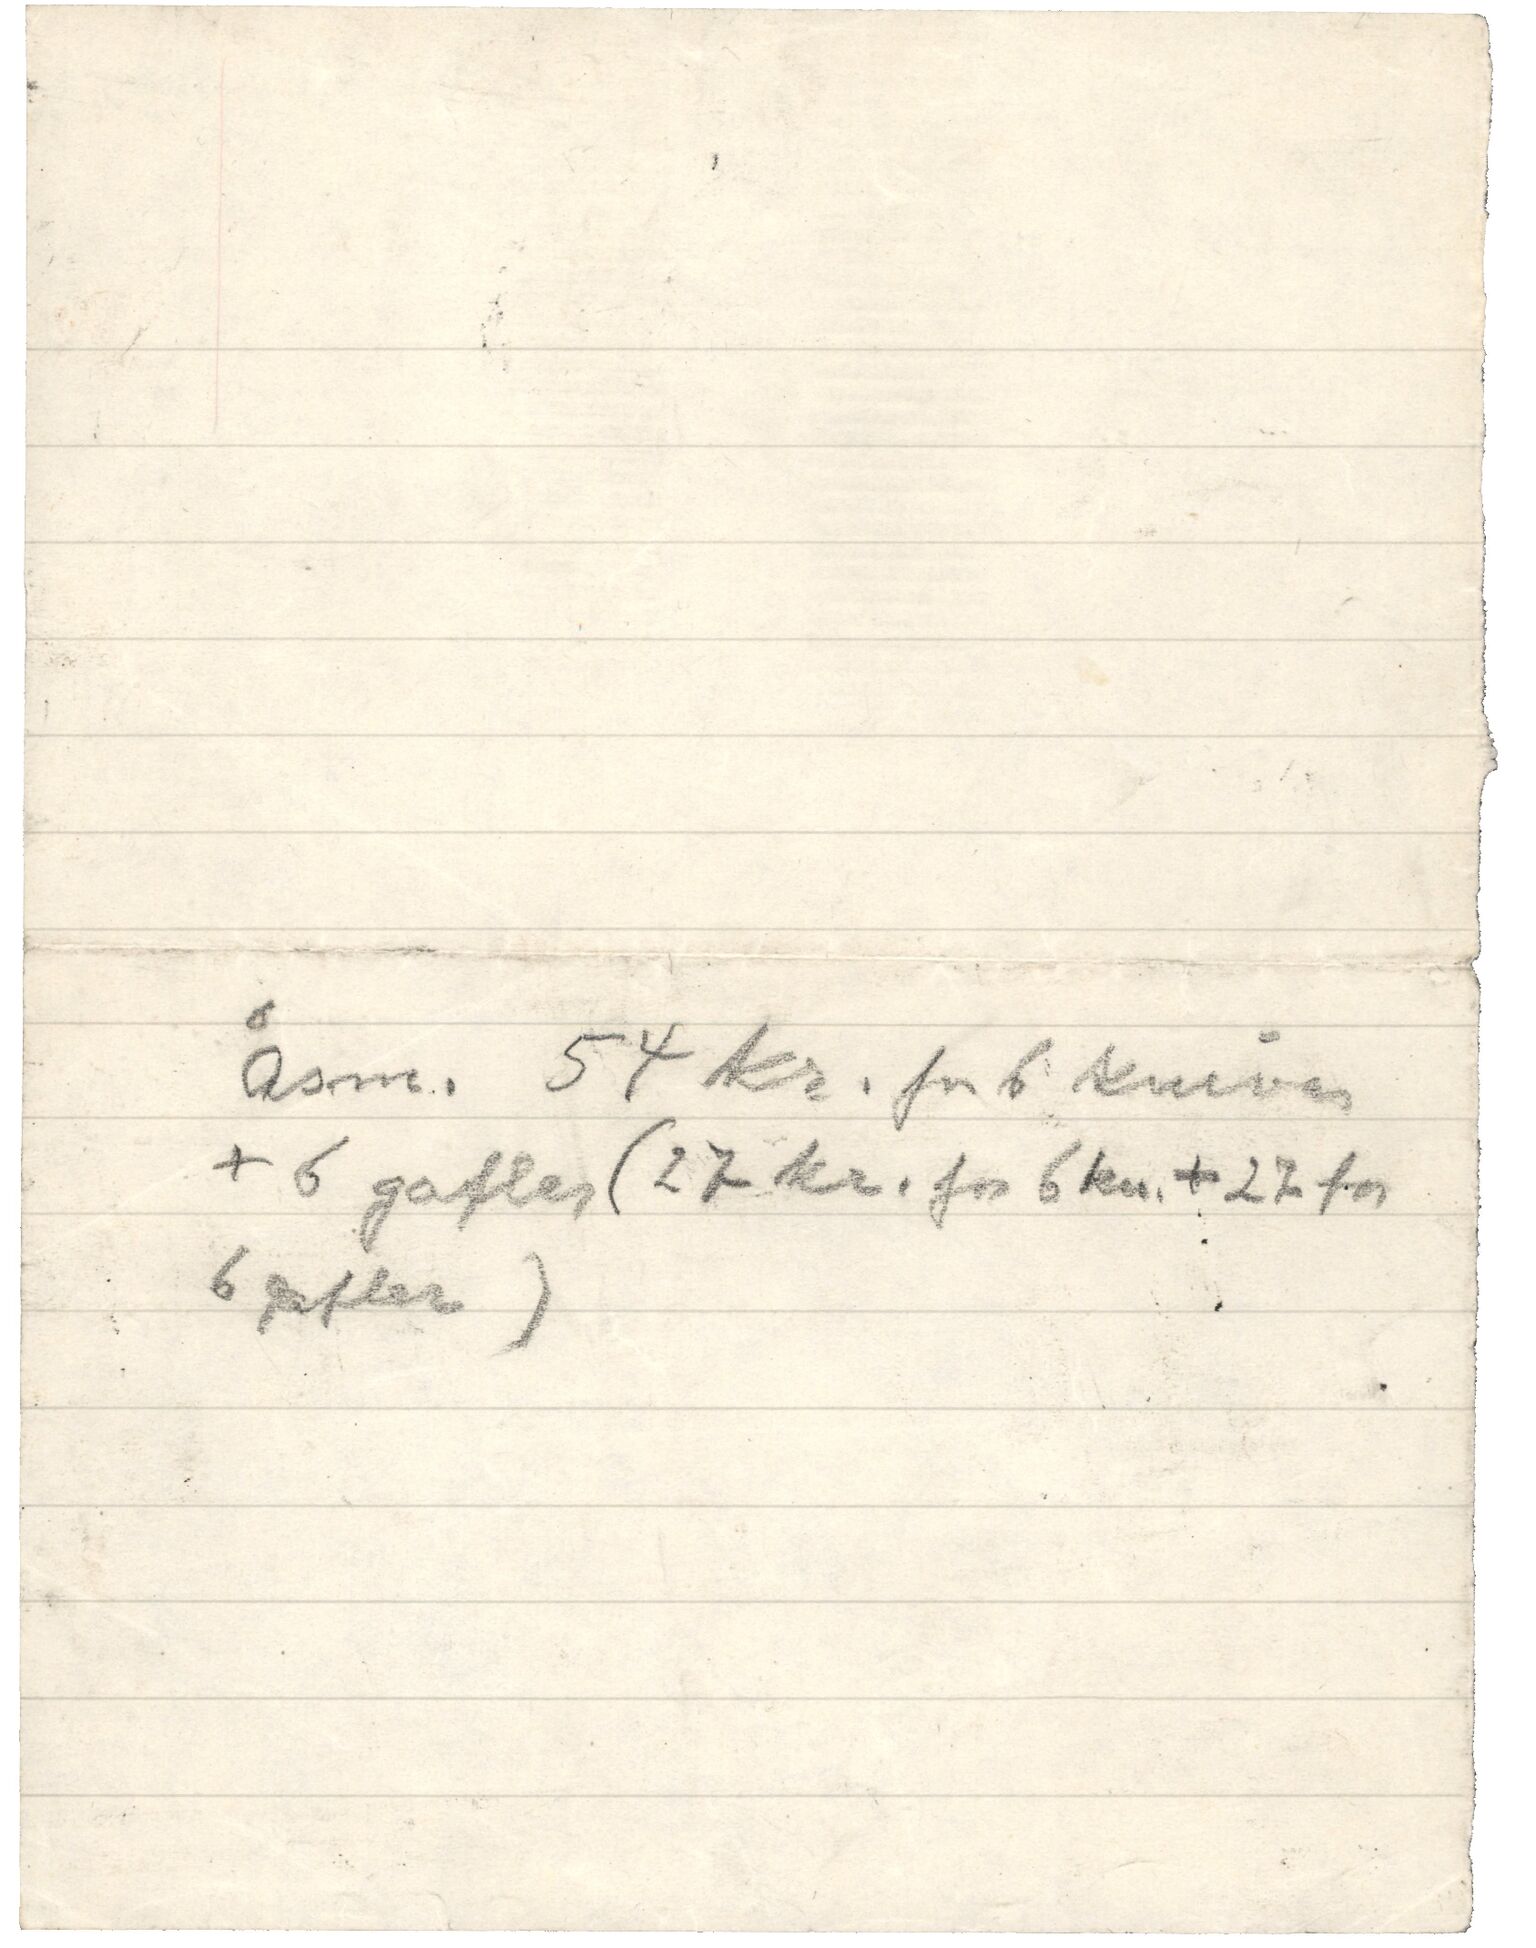 Åsm. 54 kr. for 6 kniver
+ 6 gafler (27 kr. for 6 kn. + 27 for
6 gafler)